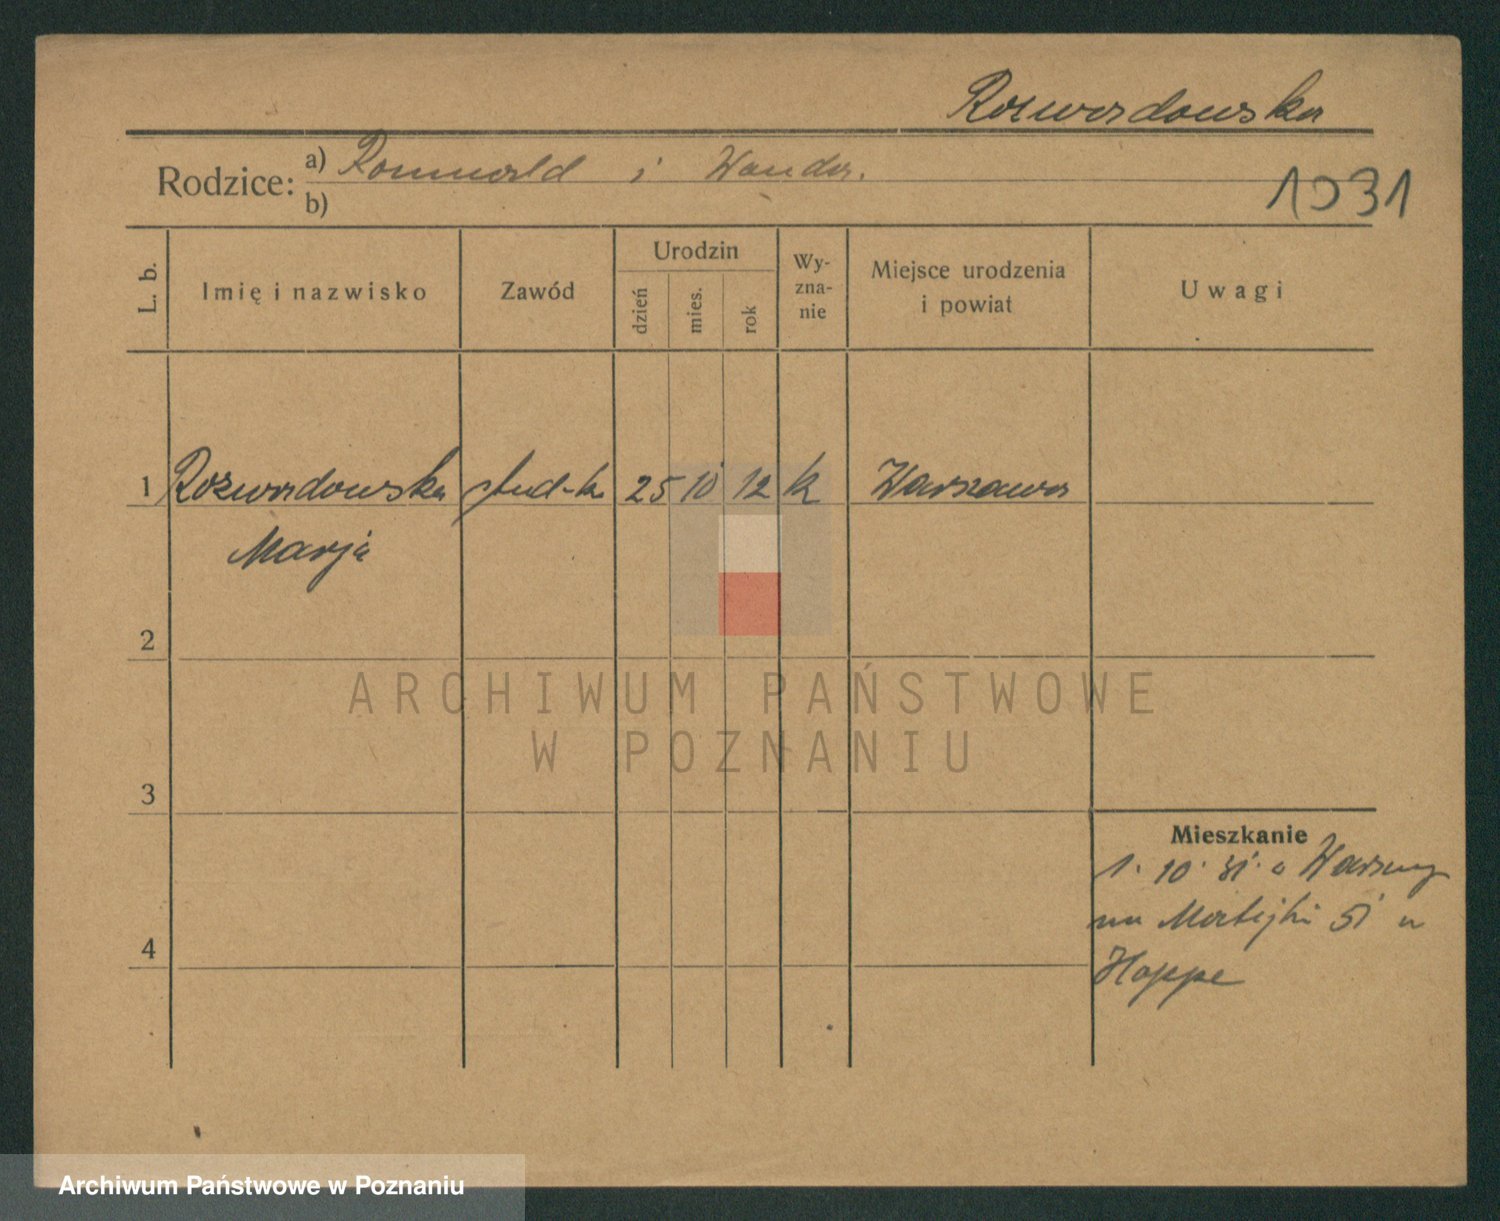 Rozwadowska
Rodzice: a) Romuald i Wanda.
b)
1931
L. b. Imię i nazwisko Zawód Urodzin dzień mies. rok Wy-zna-nie Miejsce urodzenia i powiat Uwagi
1 Rozwadowska stud-ka 25 10 12 k Warszawa
Marja
2
ARCHIWUM PAŃSTWOWE
W POZNANIU
3
Mieszkanie
1. 10. 31. z Warszawy
na Matejki 51 u
4
Hoppe
Archiwum Państwowe w Poznaniu